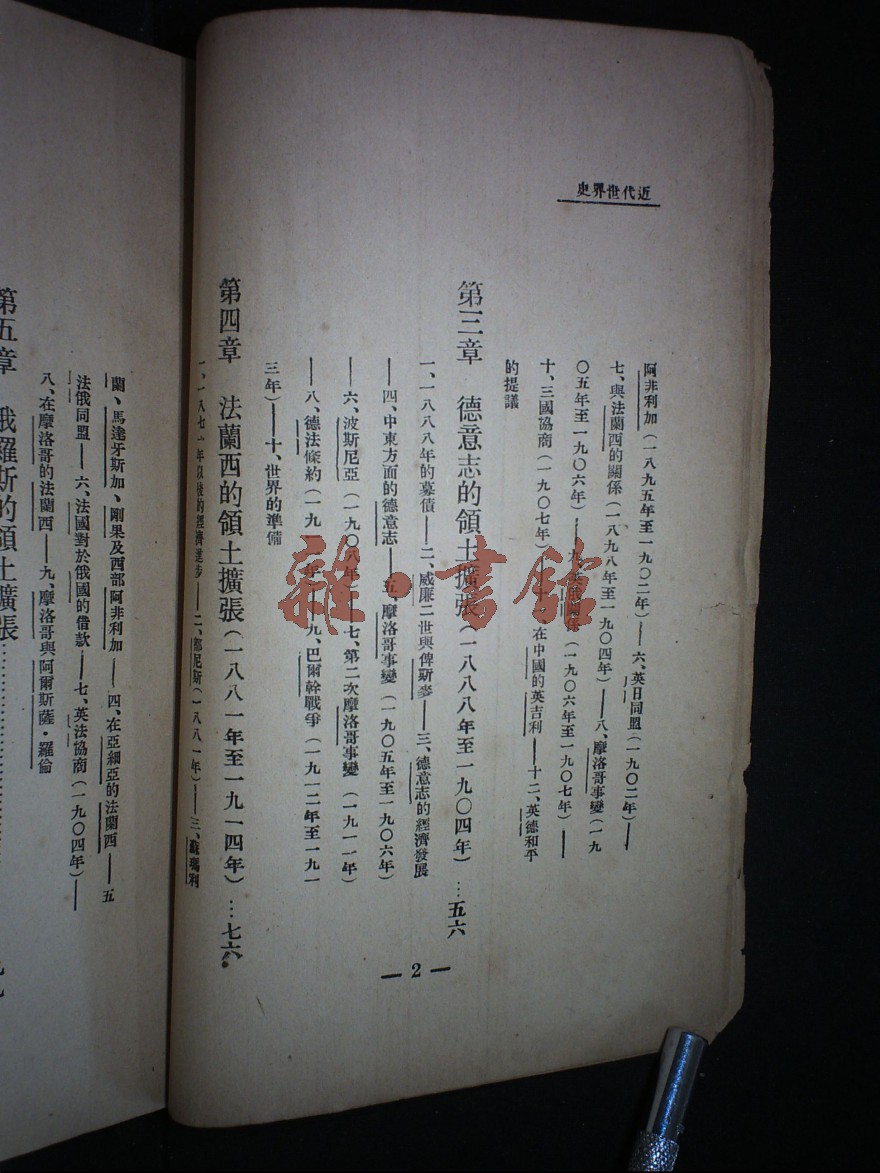 近代世界史
阿非利加（一八九五年至一九〇二年）——六、英日同盟（一九〇二年）——
七、與法蘭西的關係（一八九八年至一九〇四年）——八、摩洛哥事變（一九
〇五年至一九〇六年）——九、英俄關係（一九〇六年至一九〇七年）——
十、三國協商（一九〇七年）——十一、在中國的英吉利——十二、英德和平
的提議
第三章　德意志的領土擴張（一八八八年至一九〇四年）…五六
一、一八八八年的募債——二、威廉二世與俾斯麥——三、德意志的經濟發展
——四、中東方面的德意志——五、摩洛哥事變（一九〇五年至一九〇六年）
——六、波斯尼亞（一九〇八年）——七、第二次摩洛哥事變（一九一一年）
——八、德法條約（一九一一年）——九、巴爾幹戰爭（一九一二年至一九一
三年）——十、世界的準備
第四章　法蘭西的領土擴張（一八八一年至一九一四年）…七六
一、一八七一年以後的經濟進步——二、都尼斯（一八八一年）——三、蘇瑪利
— 2 —
蘭、馬達牙斯加、剛果及西部阿非利加——四、在亞細亞的法蘭西——五
法俄同盟——六、法國對於俄國的借款——七、英法協商（一九〇四年）——
八、在摩洛哥的法蘭西——九、摩洛哥與阿爾斯薩·羅倫
第五章　俄羅斯的領土擴張…………
雜·書館